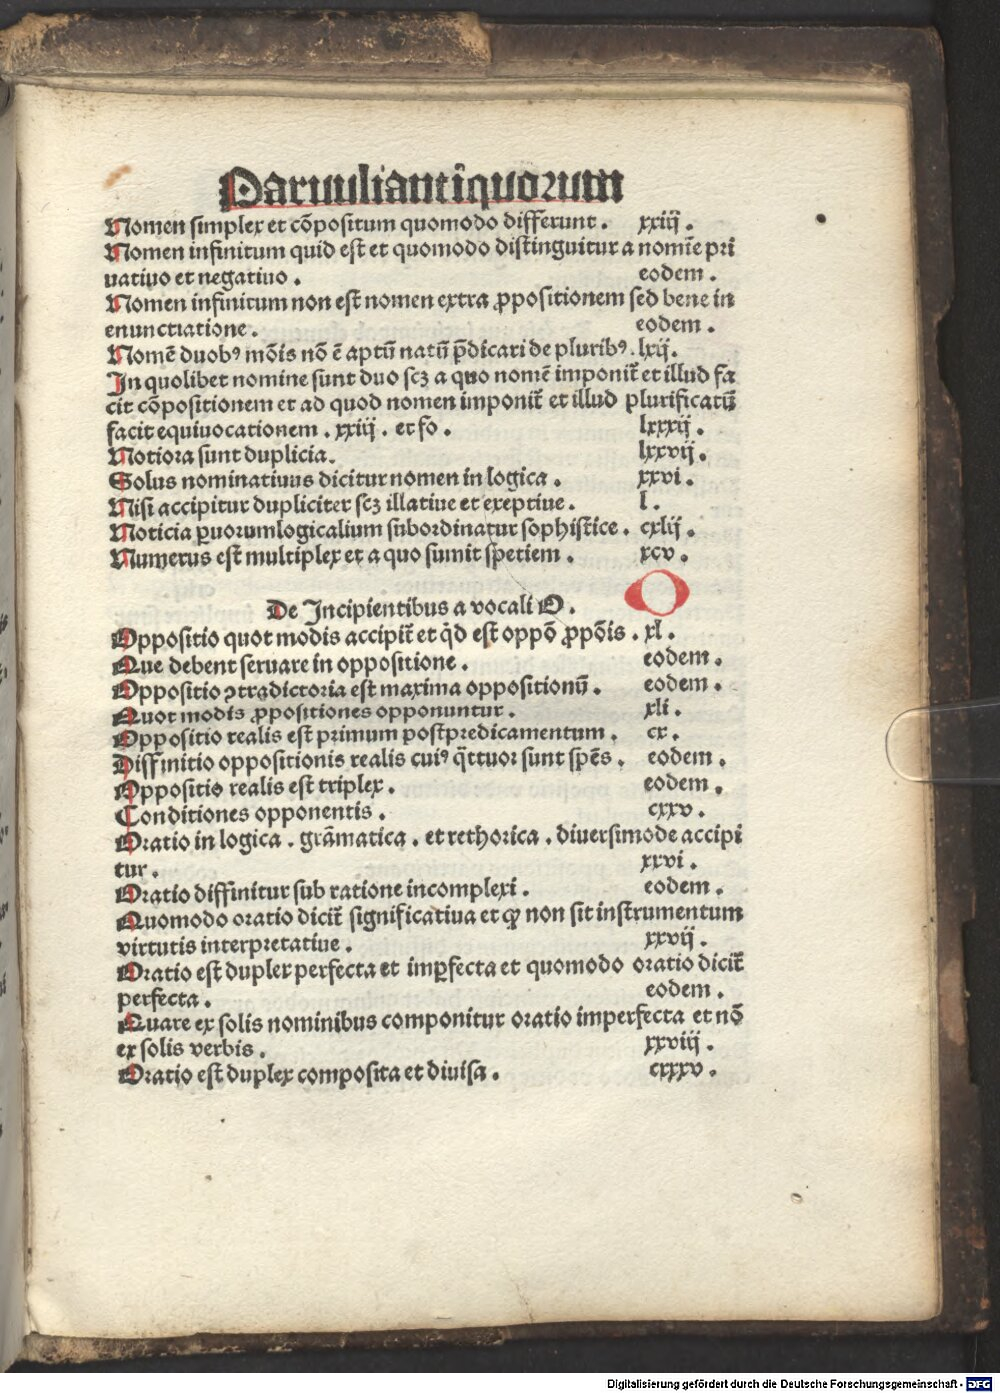 Paruuliantiquorum
Nomen simplex et cōpositum quomodo differunt . xxiij .
Nomen infinitum quid est et quomodo distinguitur a nomīe pri
uatiuo et negatiuo . eodem .
Nomen infinitum non est nomen extra ꝓpositionem sed bene in
enunctiatione . eodem .
Nomē duobꝰ mōis nō ē aptū natū p̄dicari de pluribꝰ . lxij .
In quolibet nomine sunt duo scꝫ a quo nomē imponit̄ et illud fa
cit cōpositionem et ad quod nomen imponit̄ et illud plurificatū
facit equiuocationem . xxiij . et fo . lxxxij .
Notiora sunt duplicia . lxxvij .
Solus nominatiuus dicitur nomen in logica . xxvi .
Nisi accipitur dupliciter scꝫ illatiue et exeptiue . l .
Noticia ꝑuorumlogicalium subordinatur sophistice . cxlij .
Numerus est multiplex et a quo sumit spetiem . xcv .
De Incipientibus a vocali O . O
Oppositio quot modis accipit̄ et q̄d est oppō ꝓpōis . xl .
Que debent seruare in oppositione . eodem .
Oppositio ꝯtradictoria est maxima oppositionū . eodem .
Quot modis ꝓpositiones opponuntur . xli .
Oppositio realis est primum postpredicamentum . cx .
Diffinitio oppositionis realis cuiꝰ q̄ttuor sunt spēs . eodem .
Oppositio realis est triplex . eodem .
Conditiones opponentis . cxxv .
Oratio in logica . grāmatica . et rethorica . diuersimode accipi
tur . xxvi .
Oratio diffinitur sub ratione incomplexi . eodem .
Quomodo oratio dicit̄ significatiua et ꝙ non sit instrumentum
virtutis interpretatiue . xxvij .
Oratio est duplex perfecta et imꝑfecta et quomodo oratio dicit̄
perfecta . eodem .
Quare ex solis nominibus componitur oratio imperfecta et nō
ex solis verbis . xxviij .
Oratio est duplex composita et diuisa . cxxxv .
Digitalisierung gefördert durch die Deutsche Forschungsgemeinschaft - DFG